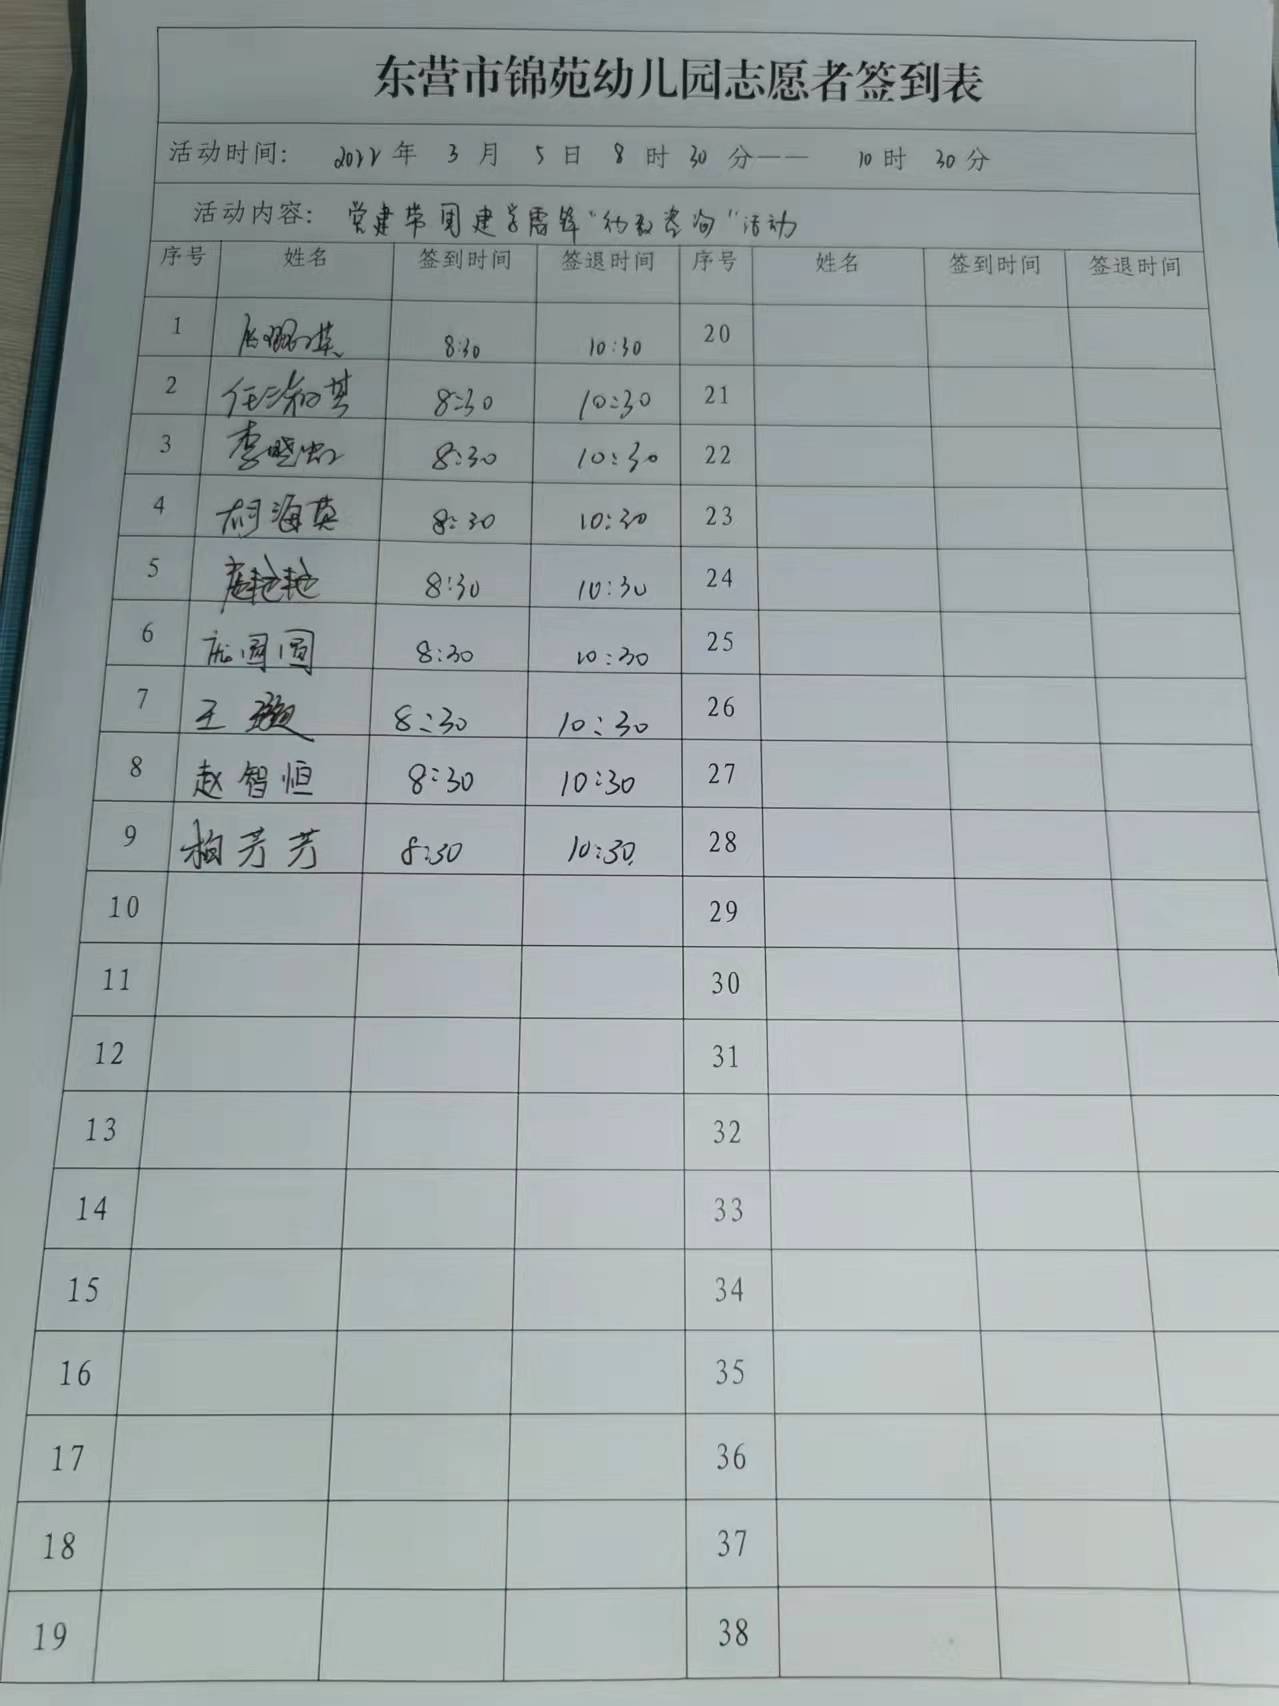 东营市锦苑幼儿园志愿者签到表
活动时间: 2022年 3月 5日 8时 30分—— 10时 30分
活动内容: 党建带团建学雷锋“幼教咨询”活动
序号 姓名 签到时间 签退时间 序号 姓名 签到时间 签退时间
1 8:30 10:30 20
2 任 8:30 10:30 21
3 李晓虹 8:30 10:30 22
4 胡海英 8:30 10:30 23
5 艳艳 8:30 10:30 24
6 圆圆 8:30 10:30 25
7 王 8:30 10:30 26
8 赵智恒 8:30 10:30 27
9 柏芳芳 8:30 10:30 28
10 29
11 30
12 31
13 32
14 33
15 34
16 35
17 36
18 37
19 38